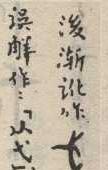 後漸訛作
誤解作：「从弋